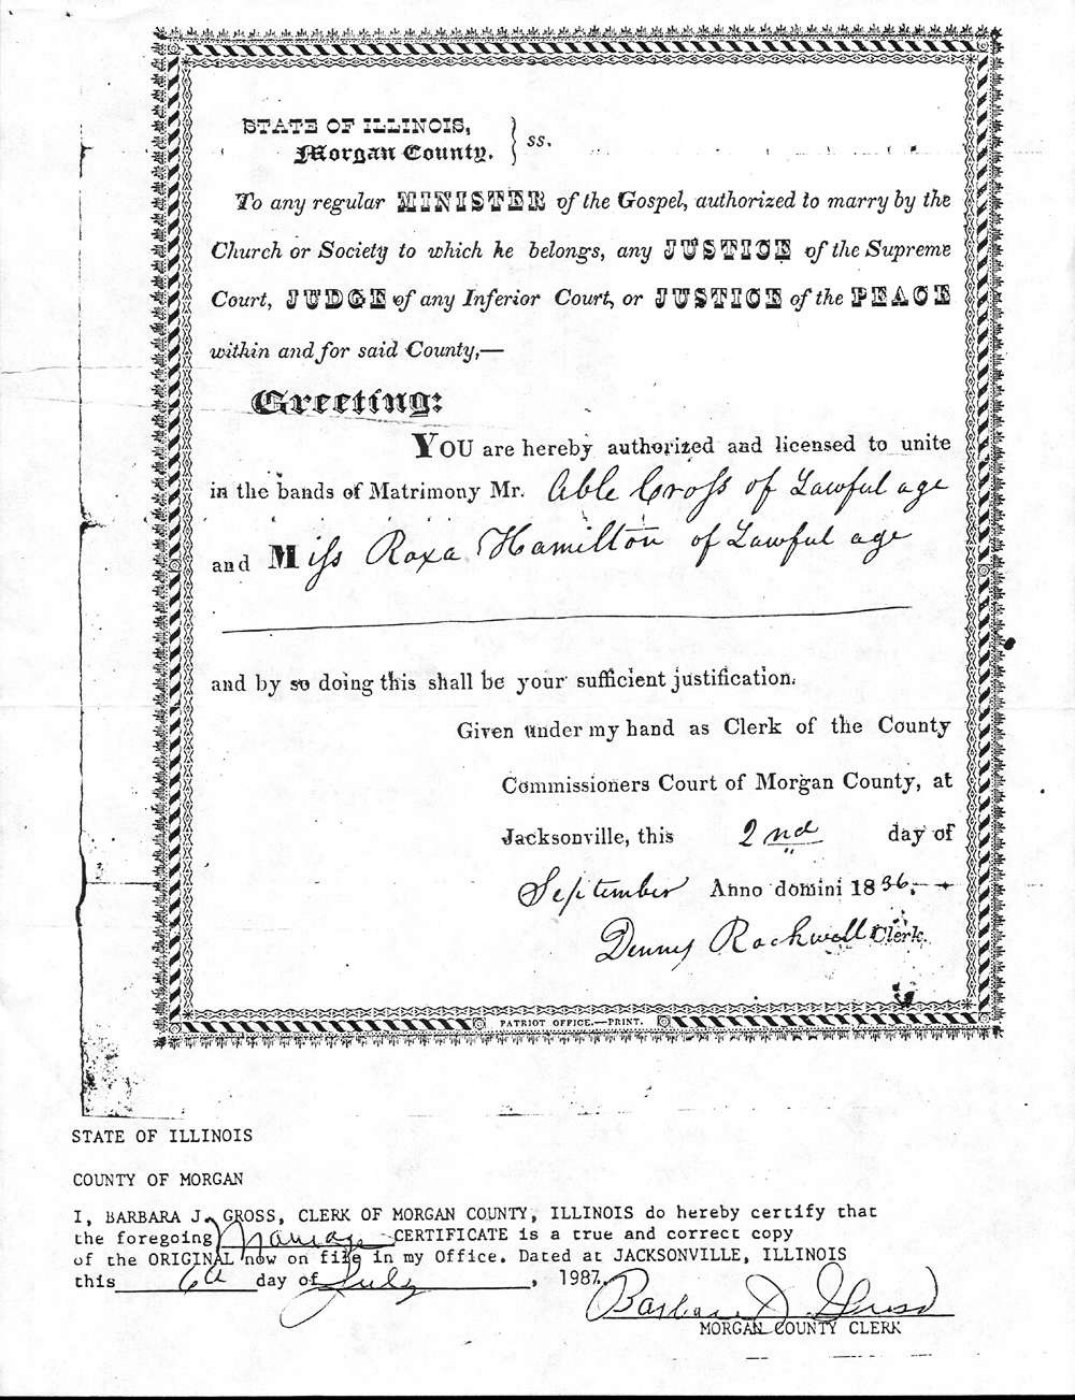 STATE OF ILLINOIS,
Morgan County. } ss.
To any regular MINISTER of the Gospel, authorized to marry by the
Church or Society to which he belongs, any JUSTICE of the Supreme
Court, JUDGE of any Inferior Court, or JUSTICE of the PEACE
within and for said County,—
Greeting:
YOU are hereby authorized and licensed to unite
in the bands of Matrimony Mr. Able Cross of Lawful age
and Miss Roxa Hamilton of Lawful age
and by so doing this shall be your sufficient justification.
Given under my hand as Clerk of the County
Commissioners Court of Morgan County, at
Jacksonville, this 2nd day of
September Anno domini 1836.
Dennis Rockwell Clerk.
PATRIOT OFFICE.—PRINT.
STATE OF ILLINOIS
COUNTY OF MORGAN
I, BARBARA J. GROSS, CLERK OF MORGAN COUNTY, ILLINOIS do hereby certify that
the foregoing Marriage CERTIFICATE is a true and correct copy
of the ORIGINAL now on file in my Office. Dated at JACKSONVILLE, ILLINOIS
this 6th day of July, 1987.
Barbara J. Gross
MORGAN COUNTY CLERK